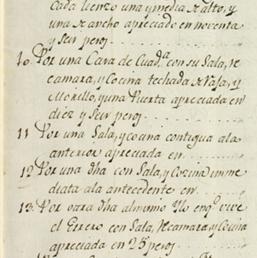 Cada lienzo una y media de alto, y
una de ancho apreciado en noventa
y seis pesos
10 Por una Casa de Cuad.ª con su Sala, re
camara, y Cocina techada de Vajas, y
Morillo, y una Puerta apreciada en
diez y seis pesos
11 Por una Sala, y cocina contigua a la
anterior apreciada en
12 Por una dha con Sala, y Cozina imme
diata ala antecedente en
13 Por otra dha al mismo
en q.e vive
el Errero con Sala, recamara, y Cocina
apreciada en 25 pesos